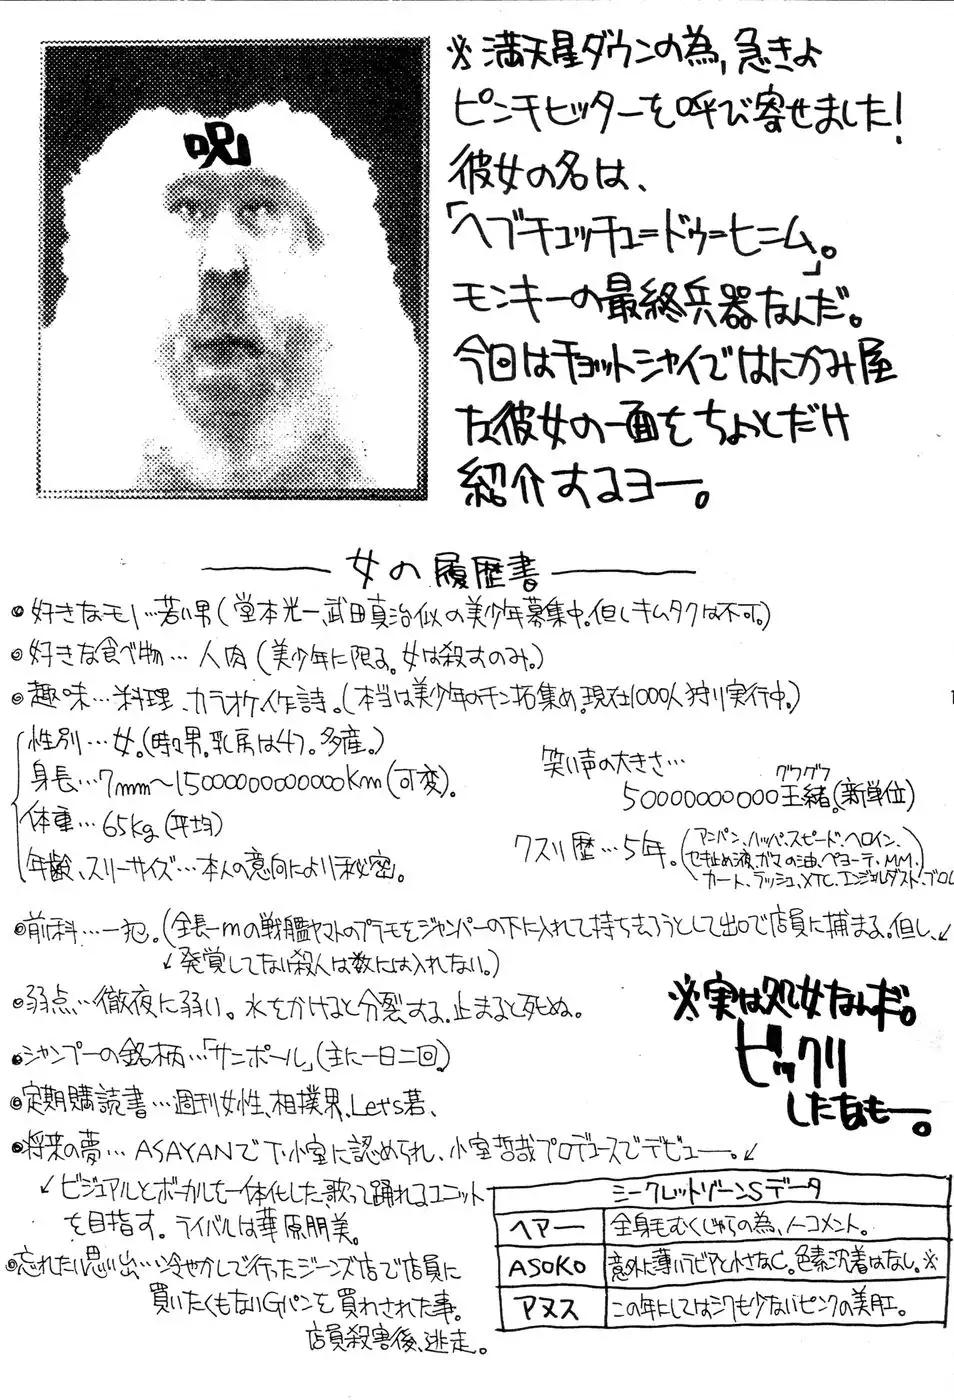 ※満天星ダウンの為、急きょ
ピンチヒッターを呼び寄せました！
彼女の名は、
「ヘブチュッチュ=ドゥ=ヒニム」。
モンキーの最終兵器なんだ。
今回はチョットシャイではにかみ屋
な彼女の一面をちょっとだけ
紹介するヨー。
呪
女の履歴書
●好きなモノ…若い男(堂本光一、武田真治似の美少年募集中。但しキムタクは不可。)
●好きな食べ物…人肉(美少年に限る。女は殺すのみ。)
●趣味…料理、カラオケ、作詩。(本当は美少年のチン拓集め。現在1000人狩り実行中。)
性別…女。(時々男。乳房は47。多産。)
身長…7mm〜1500000000000Km(可変)。
体重…65kg(平均)
年齢、スリーサイズ…本人の意向により秘密。
笑い声の大きさ…
グウグウ
50000000000王緒。(新単位)
クスリ歴…5年。
(アンパン、ハッパ、スピード、ヘロイン、
セキ止め液、ガマの油、ペヨーテ、MM、
カート、ラッシュ、XTC、エンジェルダスト、ブロ
●前科…一犯。(全長一mの戦艦ヤマトのプラモをジャンパーの下に入れて持ち去ろうとして出口で店員に捕まる。但し、↙
↙発覚してない殺人は数には入れない。)
●弱点…徹夜に弱い。水をかけると分裂する。止まると死ぬ。
●シャンプーの銘柄…「サンポール」(主に一日二回)
●定期購読書…週刊女性、相撲界、Let's碁、
●将来の夢…ASAYANで下小室に認められ、小室哲哉プロデュースでデビュー。↙
↙ビジュアルとボーカルを一体化した、歌って踊れるユニット
を目指す。ライバルは華原朋美。
●忘れたい思い出…冷やかしで行ったジーンズ店で店員に
買いたくもないGパンを買わされた事。
店員殺害後、逃走。
※実は処女なんだ。
ビックリ
したなもー。
シークレットゾーンSデータ
ヘアー 全身毛むくじゃらの為、ノーコメント。
ASOKO 意外に薄いラビアと小さなC。色素沈着はなし。※
アヌス この年にしてはシワも少ないピンクの美肛。